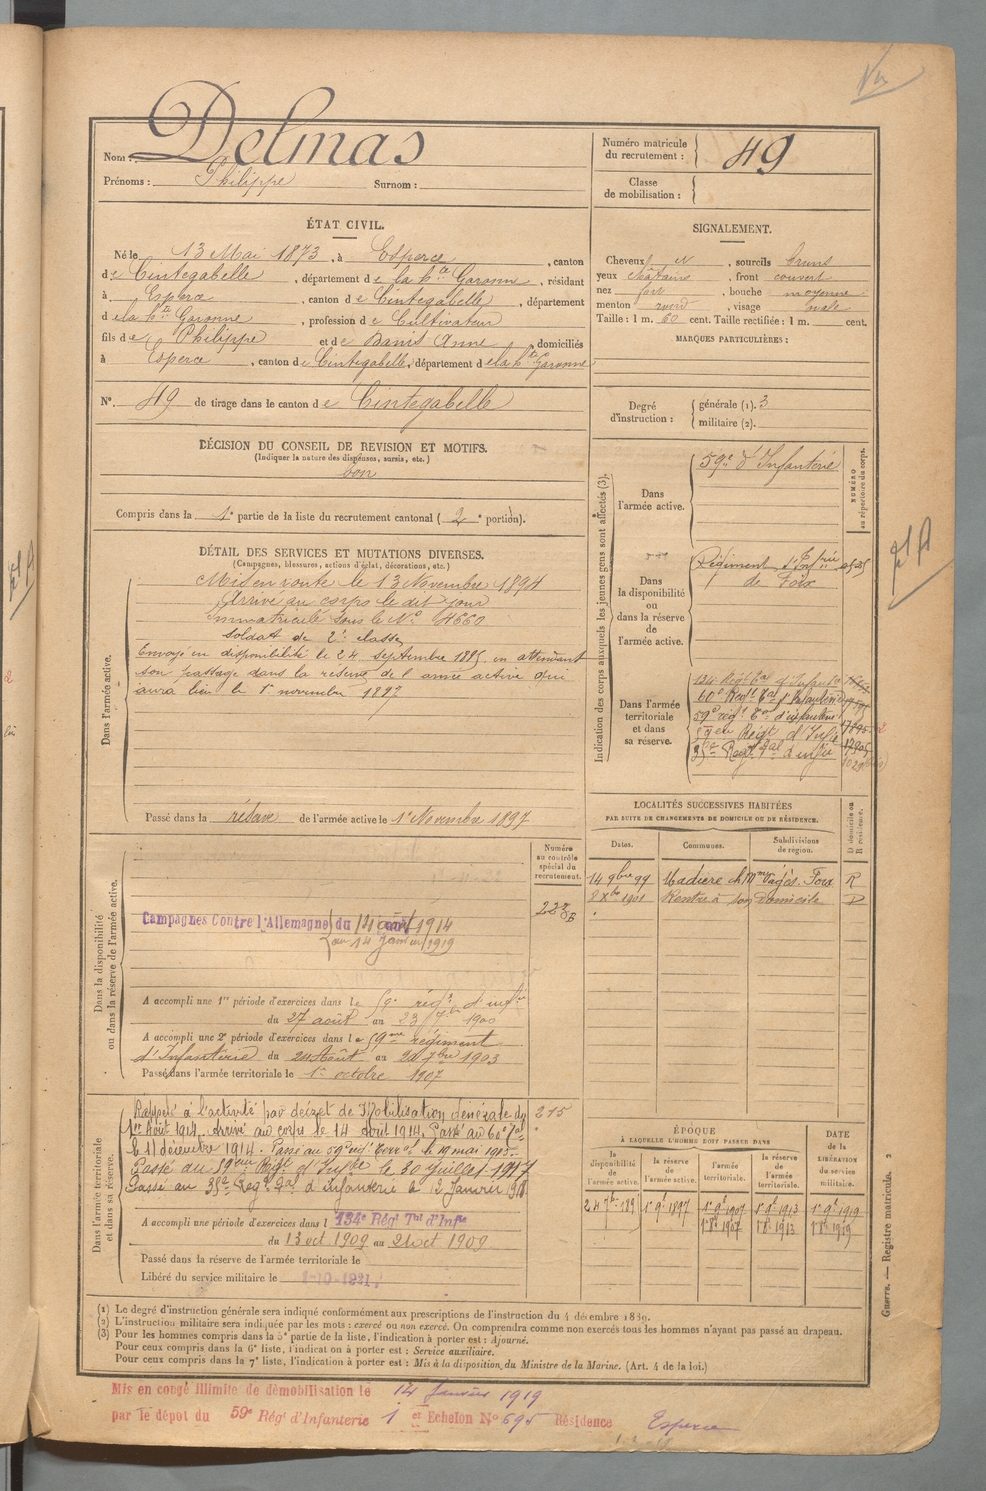 Nom : Delmas
Prénoms : Philippe Surnom :
Numéro matricule du recrutement : 49
Classe de mobilisation :
ÉTAT CIVIL.
Né le 13 Mai 1873, à Esperce, canton
de Cintegabelle, département de la hte Garonne, résidant
à Esperce, canton de Cintegabelle, département
de la hte Garonne, profession de Cultivateur
fils de Philippe et de Banis Anne, domiciliés
à Esperce, canton de Cintegabelle, département de la hte Garonne
No. 49 de tirage dans le canton de Cintegabelle
DÉCISION DU CONSEIL DE REVISION ET MOTIFS.
(Indiquer la nature des dispenses, sursis, etc.)
bon
Compris dans la 1e partie de la liste du recrutement cantonal (2e portion).
SIGNALEMENT.
Cheveux N, sourcils bruns
yeux châtains, front couvert
nez fort, bouche moyenne
menton rond, visage ovale
Taille : 1 m. 60 cent. Taille rectifiée : 1 m. cent.
MARQUES PARTICULIÈRES :
Degré d'instruction : générale (1). 3
militaire (2).
DÉTAIL DES SERVICES ET MUTATIONS DIVERSES.
(Campagnes, blessures, actions d'éclat, décorations, etc.)
Dans l'armée active.
Mis en route le 13 Novembre 1894
Arrivé au corps le dit jour
immatriculé sous le No 4660
soldat de 2e classe
Envoyé en disponibilité le 24 septembre 1895 en attendant
son passage dans la réserve de l'armée active qui
aura lieu le 1er novembre 1897
Passé dans la réserve de l'armée active le 1er Novembre 1897
Indication des corps auxquels les jeunes gens sont affectés (3).
NUMÉRO au répertoire du corps.
Dans l'armée active.
59e d'Infanterie
Dans la disponibilité ou dans la réserve de l'armée active.
Régiment d'Infrie
de Foix
Dans l'armée territoriale et dans sa réserve.
134 Régt Tal d'Infanterie
60e Régt Tal d'Infanterie
59e régt Tal d'infanterie
59em Régt d'Infie
35e Regt Tal d'infie
LOCALITÉS SUCCESSIVES HABITÉES
PAR SUITE DE CHANGEMENTS DE DOMICILE OU DE RÉSIDENCE.
Dates. Communes. Subdivisions de région. D domicile ou R résidence.
14 9bre 99 Madière Foix R
2 Xbre 1901 Rentré à son Domicile D
Dans la disponibilité ou dans la réserve de l'armée active.
Numéro au contrôle spécial du recrutement.
Campagnes Contre l'Allemagne du 14 août 1914
au 14 Janvier 1919
A accompli une 1re période d'exercices dans le 59e régt d'infie
du 27 août au 23 7bre 1900
A accompli une 2e période d'exercices dans le 59me régiment
d'Infanterie du 24 Août au 20 7bre 1903
Passé dans l'armée territoriale le 1er octobre 1907
Dans l'armée territoriale et dans sa réserve.
Rappelé à l'activité par décret de Mobilisation Générale du 215
1er Août 1914. Arrivé au corps le 14 août 1914. Passé au 60e Tal
le 11 décembre 1914. Passé au 59e régt Terral le 19 mai 1915.
Passé au 59em Régt d'Infrie le 30 juillet 1917
Passé au 35e Regt Tal d'Infanterie le 12 Janvier 1918
A accompli une période d'exercices dans l 134e Régt Tal d'Infie
du 13 oct 1909 au 21 oct 1909
Passé dans la réserve de l'armée territoriale le
Libéré du service militaire le 1-10-1921
ÉPOQUE À LAQUELLE L'HOMME DOIT PASSER DANS
DATE de la LIBÉRATION du service militaire.
la disponibilité de l'armée active. la réserve de l'armée active. l'armée territoriale. la réserve de l'armée territoriale.
24 7bre 1895 1er 9e 1897 1er 9e 1907 1er 9e 1913 1er 9e 1919
1er 8e 1907 1er 8e 1913 1er 8e 1919
Guerre. — Registre matricule. 2
(1) Le degré d'instruction générale sera indiqué conformément aux prescriptions de l'instruction du 4 décembre 1889.
(2) L'instruction militaire sera indiquée par les mots : exercé ou non exercé. On comprendra comme non exercés tous les hommes n'ayant pas passé au drapeau.
(3) Pour les hommes compris dans la 5e partie de la liste, l'indication à porter est : Ajourné.
Pour ceux compris dans la 6e liste, l'indication à porter est : Service auxiliaire.
Pour ceux compris dans la 7e liste, l'indication à porter est : Mis à la disposition du Ministre de la Marine. (Art. 4 de la loi.)
Mis en congé illimité de démobilisation le 14 Janvier 1919
par le dépot du 59e Régt d'Infanterie 1er Echelon No 695 Résidence Esperce